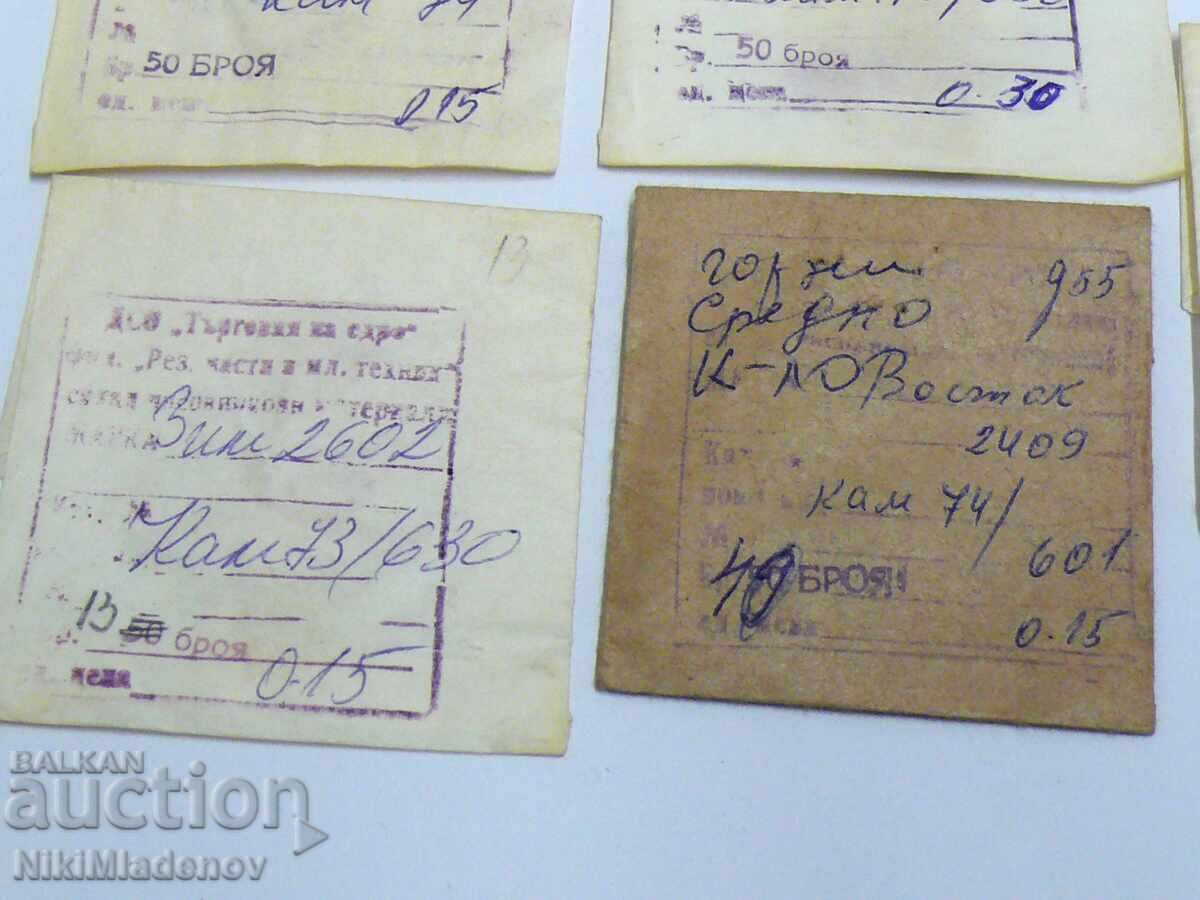 кам 74
№
бр. 50 БРОЯ
ед. цена 0.15
№
бр. 50 броя
ед. цена 0.30
13
ДСО „Търговия на едро“
фил. „Рез. части и мл. техник
МАРКА Зим 2602
Кат. №
Кам 73/630
13 50 броя
цена 0.15
горни 955
Средно
К-ло Восток
2409
Кам 74/
№ 601
40 БРОЯ
ед. цена 0.15
BALKAN
auction
NikiMladenov